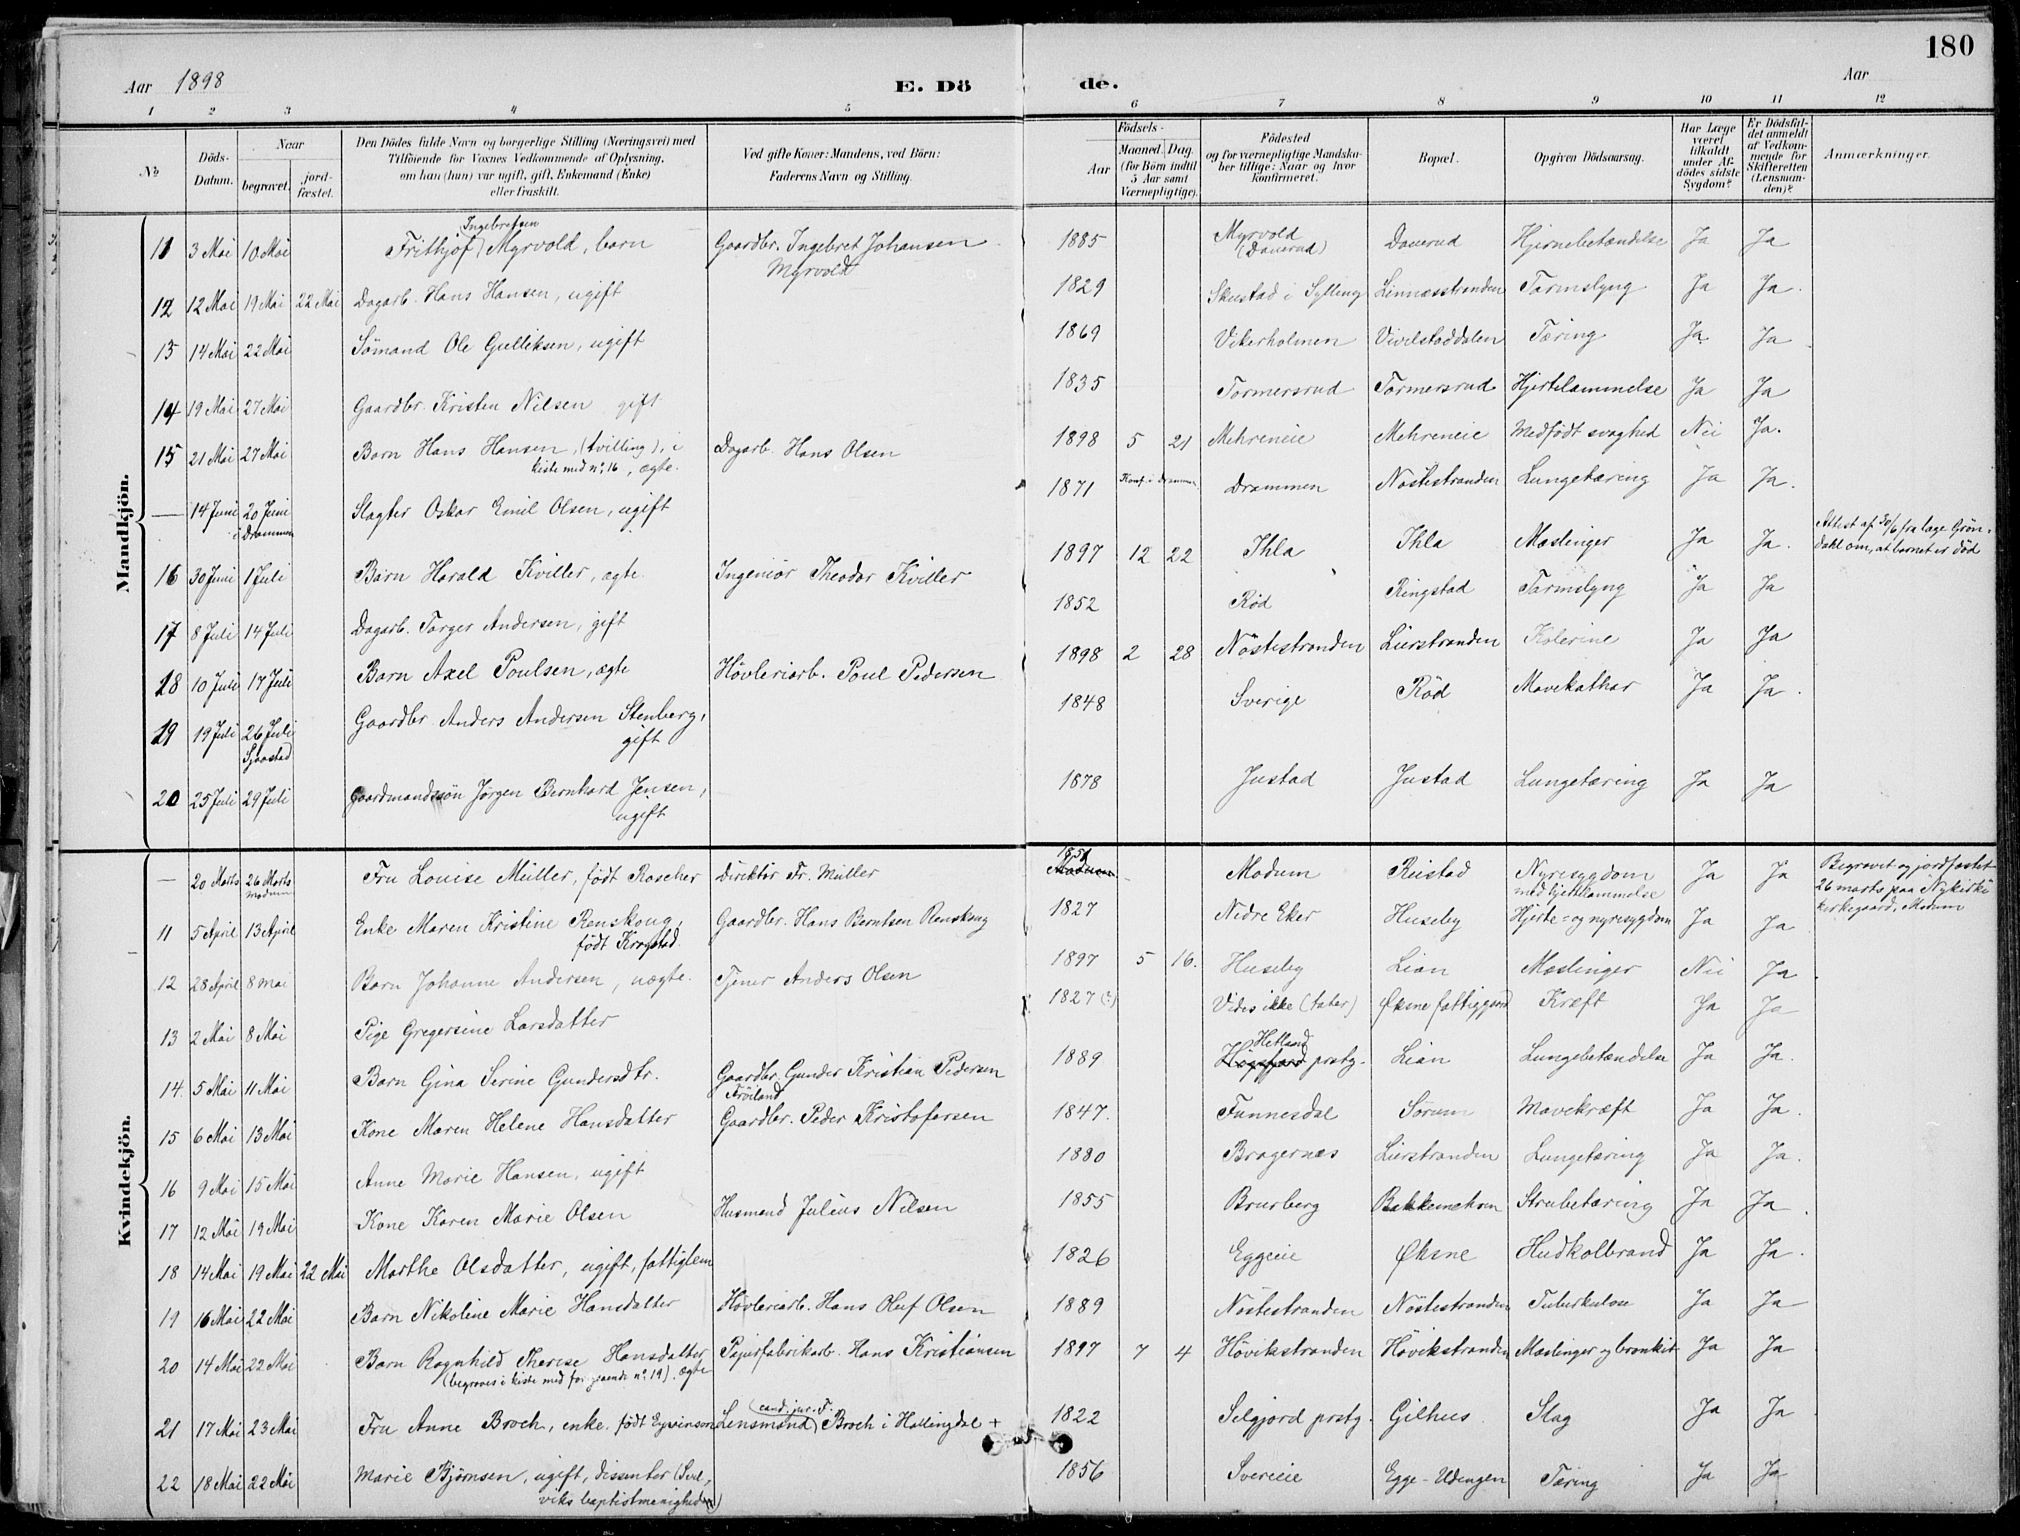 180
Aar 1898
E. Dö
de.
Aar
1 2 3 4 5 6 7 8 9 10 11 12
No
Döds-Datum.
Naar
begravet.
jord-fæstet.
Den Dödes fulde Navn og borgerlige Stilling (Næringsvei) med
Tilföiende for Voxnes Vedkommende af Oplysning,
om han (hun) var ugift, gift, Enkemand (Enke)
eller fraskilt.
Ved gifte Koner: Mandens, ved Börn:
Faderens Navn og Stilling.
Födsels-
Aar
Maaned. Dag.
(for Börn indtil
5 Aar samt
Værnepligtige).
Födested
og for værnepligtige Mandska-
ber tillige: Naar og hvor
konfirmeret.
Bopæl.
Opgiven Dödsaarsag.
Har Læge
været
tilkaldt
under Af-
dödes sidste
Sygdom?
Er Dödsfal-
det anmeldt
af Vedkom-
mende for
Skifteretten
(Lensman-
den)?
Anmærkninger.
Mandkjön.
11 3 Mai 10 Mai Frithjof Ingebretsen Myrvold, barn Gaardbr. Ingebret Johansen Myrvold 1885 Myrvold (Dauerud) Dauerud Hjernebetændelse Ja Ja
12 12 Mai 19 Mai 22 Mai Dagarb. Hans Hansen, ugift 1829 Skustad i Sylling Linnesstranden Tarmslyng Ja Ja.
13 14 Mai 22 Mai Sömand Ole Gulliksen, ugift 1869 Vikerholmen Vivelstaddalen Tæring Ja Ja
14 19 Mai 27 Mai Gaardbr. Kristen Nilsen gift 1835 Tormersrud Tormersrud Hjertelammelse Ja Ja
15 21 Mai 27 Mai Barn Hans Hansen, (tvilling), i kiste med no. 16, ægte. Dagarb. Hans Olsen 1898 5 21 Mehreneie Mehreneie Medfödt svaghed Nei Ja.
— 14 Juni 20 Juni i Drammen Slagter Oskar Emil Olsen, ugift 1871 Konf. i Drammen Drammen Nöstestranden Lungetæring Ja Ja.
16 30 Juni 1 Juli Barn Harald Kviller, ægte. Ingeniör Theodor Kviller 1897 12 22 Ihla Ihla Mæslinger Ja Ja. Attest af 30/6 fra læge Grön-dahl om, at barnet er död
17 8 Juli 14 Juli Dagarb. Torger Andersen, gift 1852 Röd Ringstad Tarmslyng Ja Ja
18 10 Juli 17 Juli Barn Axel Poulsen, ægte Hövleriarb. Poul Pedersen 1898 2 28 Nöstestranden Lierstranden Kolerine Ja Ja
19 19 Juli 26 Juli Sjaastad Gaardbr Anders Andersen Stenberg, gift 1848 Sverige Röd Mavekathar Ja Ja.
20 25 Juli 29 Juli Gaardmandssön Jörgen Bernhard Jensen, ugift 1878 Justad Justad Lungetæring Ja Ja
Kvindekjön.
— 20 Marts 26 Marts Modum Fru Louise Müller, födt Roscher Direktör Fr. Müller Modum Modum Riistad Nyresygdom med hjertelammelse Ja Ja Begravet og jordfæstet 26 marts paa Nykirke kirkegaard, Modum
11 5 April 13 April Enke Maren Kristine Renskoug, födt Krogstad. Gaardbr. Hans Berntsen Renskoug 1827 Nedre Eker Huseby Hjerte- og nyresygdom Ja Ja
12 28 April 8 mai Barn Johanne Andersen, uægte. Tjener Anders Olsen 1897 5 16. Huseby Lian Mæslinger Nei Ja
13 2 Mai 8 Mai Pige Gregersine Larsdatter 1827 (?) Vides ikke (tater) Öksne fattiggaard Kræft Ja Ja
14. 5 Mai 11 Mai Barn Gina Serine Gundersdtr. Gaardbr. Gunder Kristian Pedersen Fröiland 1889 Hetland prstg. Lian Lungebetændelse Ja Ja.
15 6 Mai 13 Mai Kone Maren Helene Hansdatter Gaardbr. Peder Kristofersen 1847. Funnesdal Sörum Mavekræft Ja Ja.
16 9 Mai 15 Mai Anne Marie Hansen, ugift 1880 Bragernæs Lierstranden Lungetæring Ja Ja.
17 12 Mai 19 Mai Kone Karen Marie Olsen Husmand Julius Nilsen 1855 Bruserberg Strubetæring Ja Ja.
18 14 Mai 19 Mai 22 Mai Marthe Olsdatter, ugift, fattiglem 1826 Eggeie Öksne Hudkolbrand Ja Ja.
19 16 Mai 22 Mai Barn Nikoline Marie Hansdatter Hövleriarb. Hans Oluf Olsen 1889 Nöstestranden Nöstestranden Tuberkulose Ja Ja
20 14 Mai 22 Mai Barn Ragnhild Therese Hansdatter (begraves i kiste med foregaaende no. 19). ægte Papirfabrikarb. Hans Kristiansen 1897 7 4 Hövikstranden Hövikstranden Mæslinger og bronkit Ja Ja
21 17 Mai 23 Mai Fru Anne Broch, enke, födt Lensmand cand. jur. F. Broch i Hallingdal + 1822 Selgjord prstg. Gilhus Slag Ja Ja
22 18 Mai 22 Mai Marie Bjørnsen, ugift, dissenter (Svelviks baptistmenigheden) 1856 Svereie Egge-Udengen Tæring Ja Ja